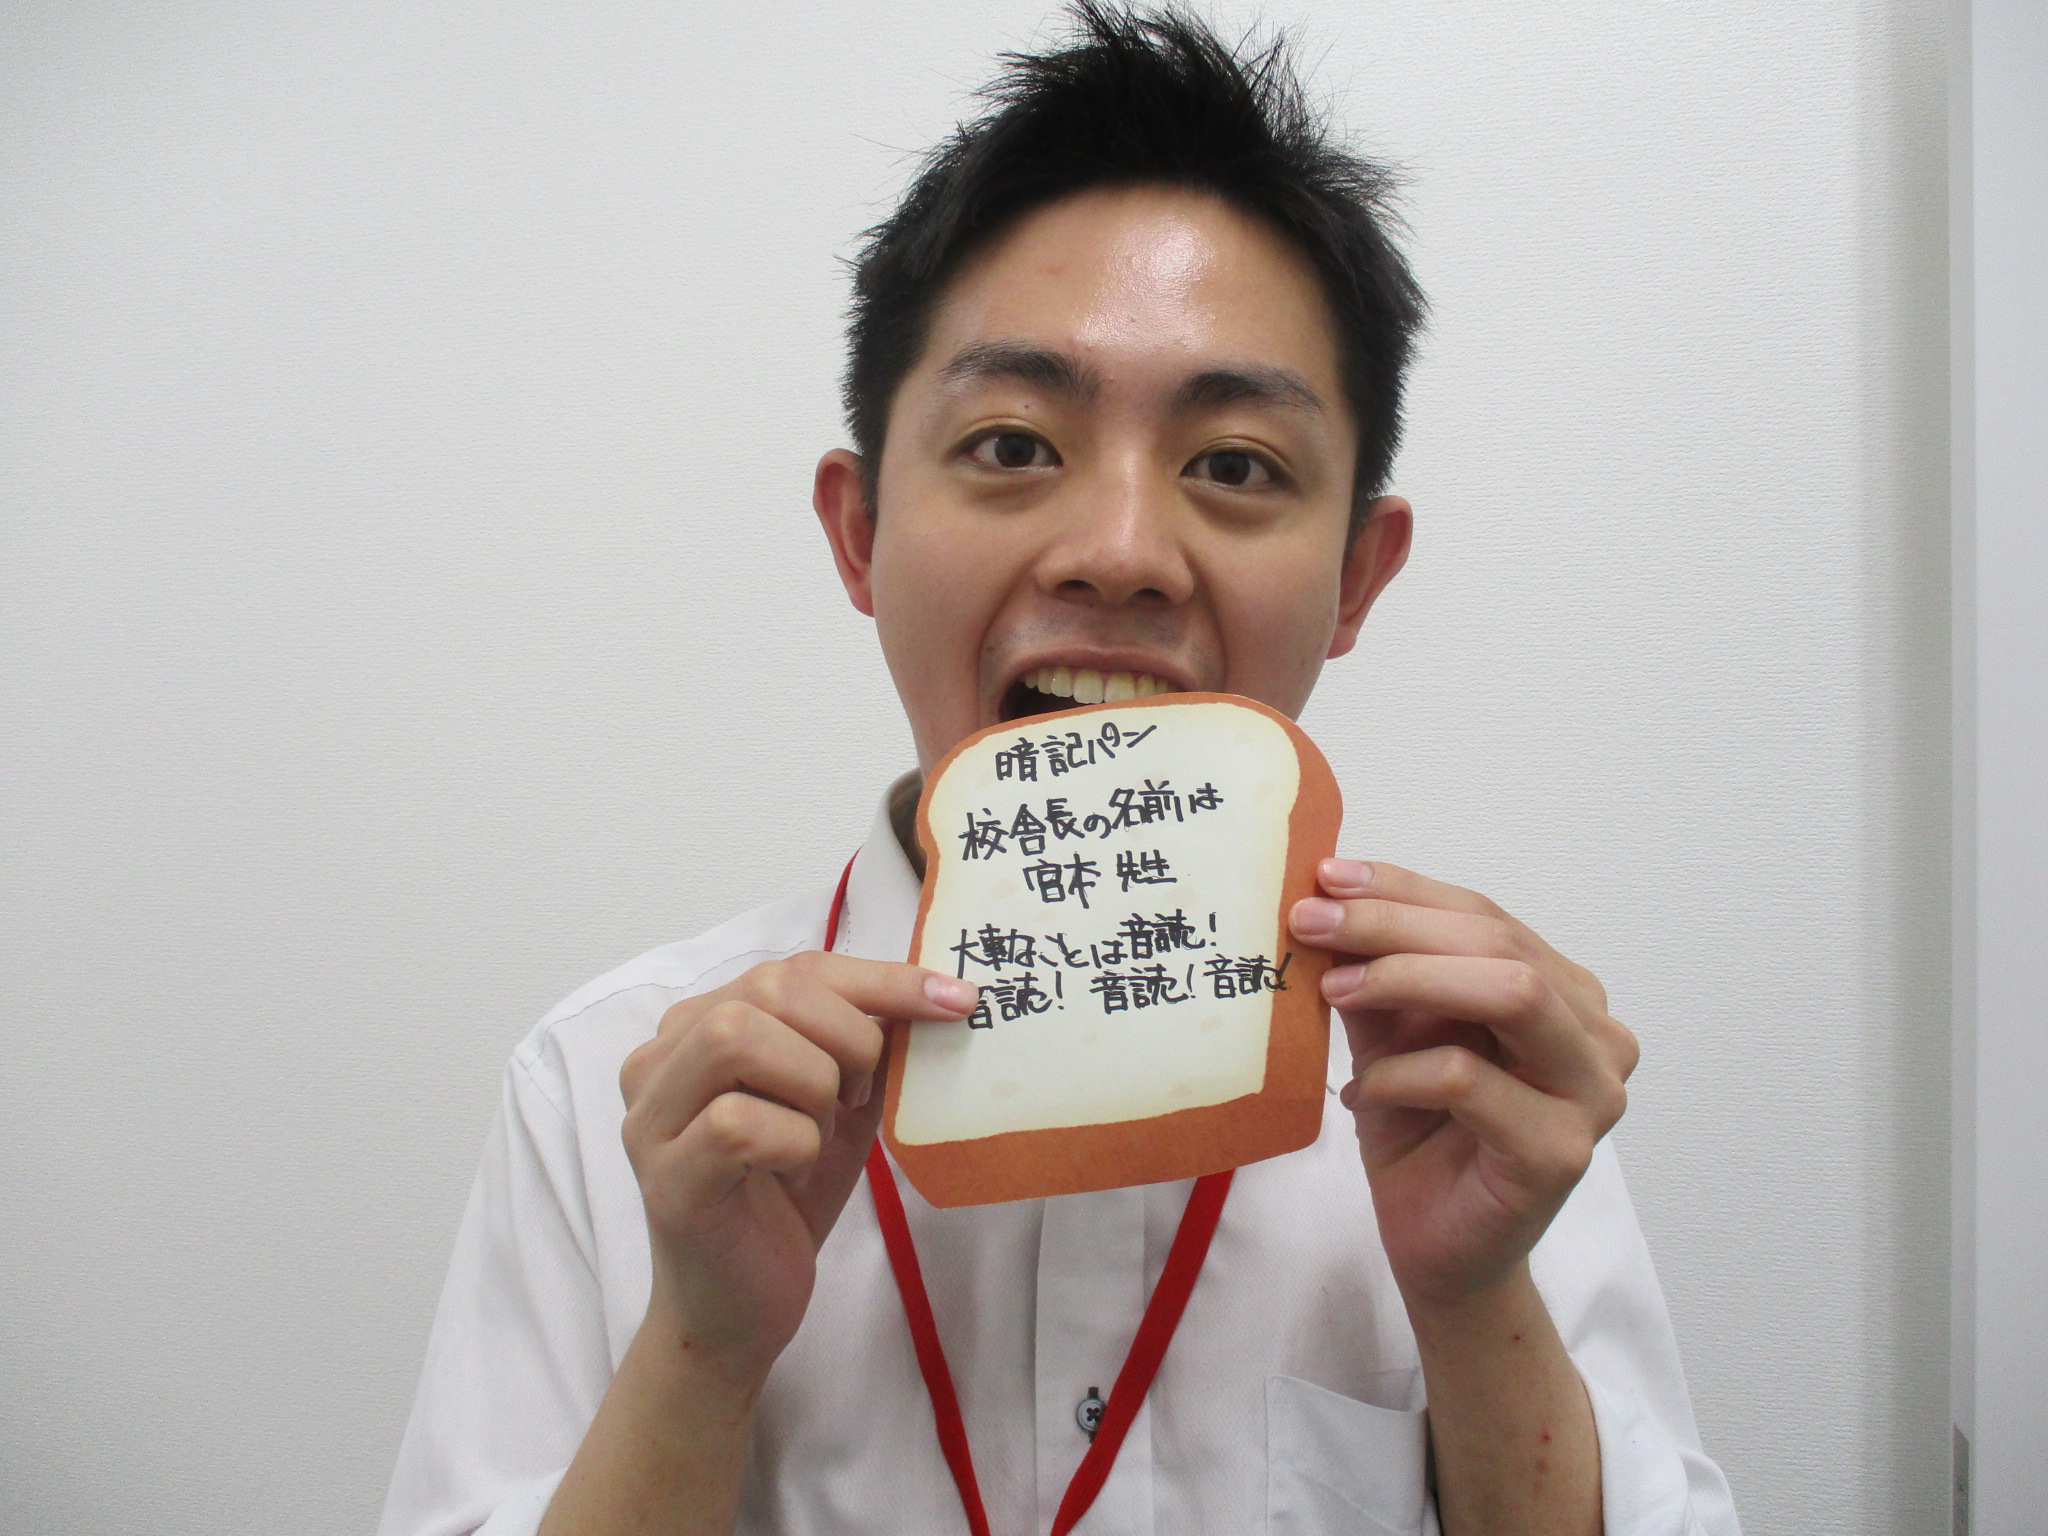 暗記パン
校舎長の名前は
宮本 先生
大事なことは音読!
音読! 音読! 音読!